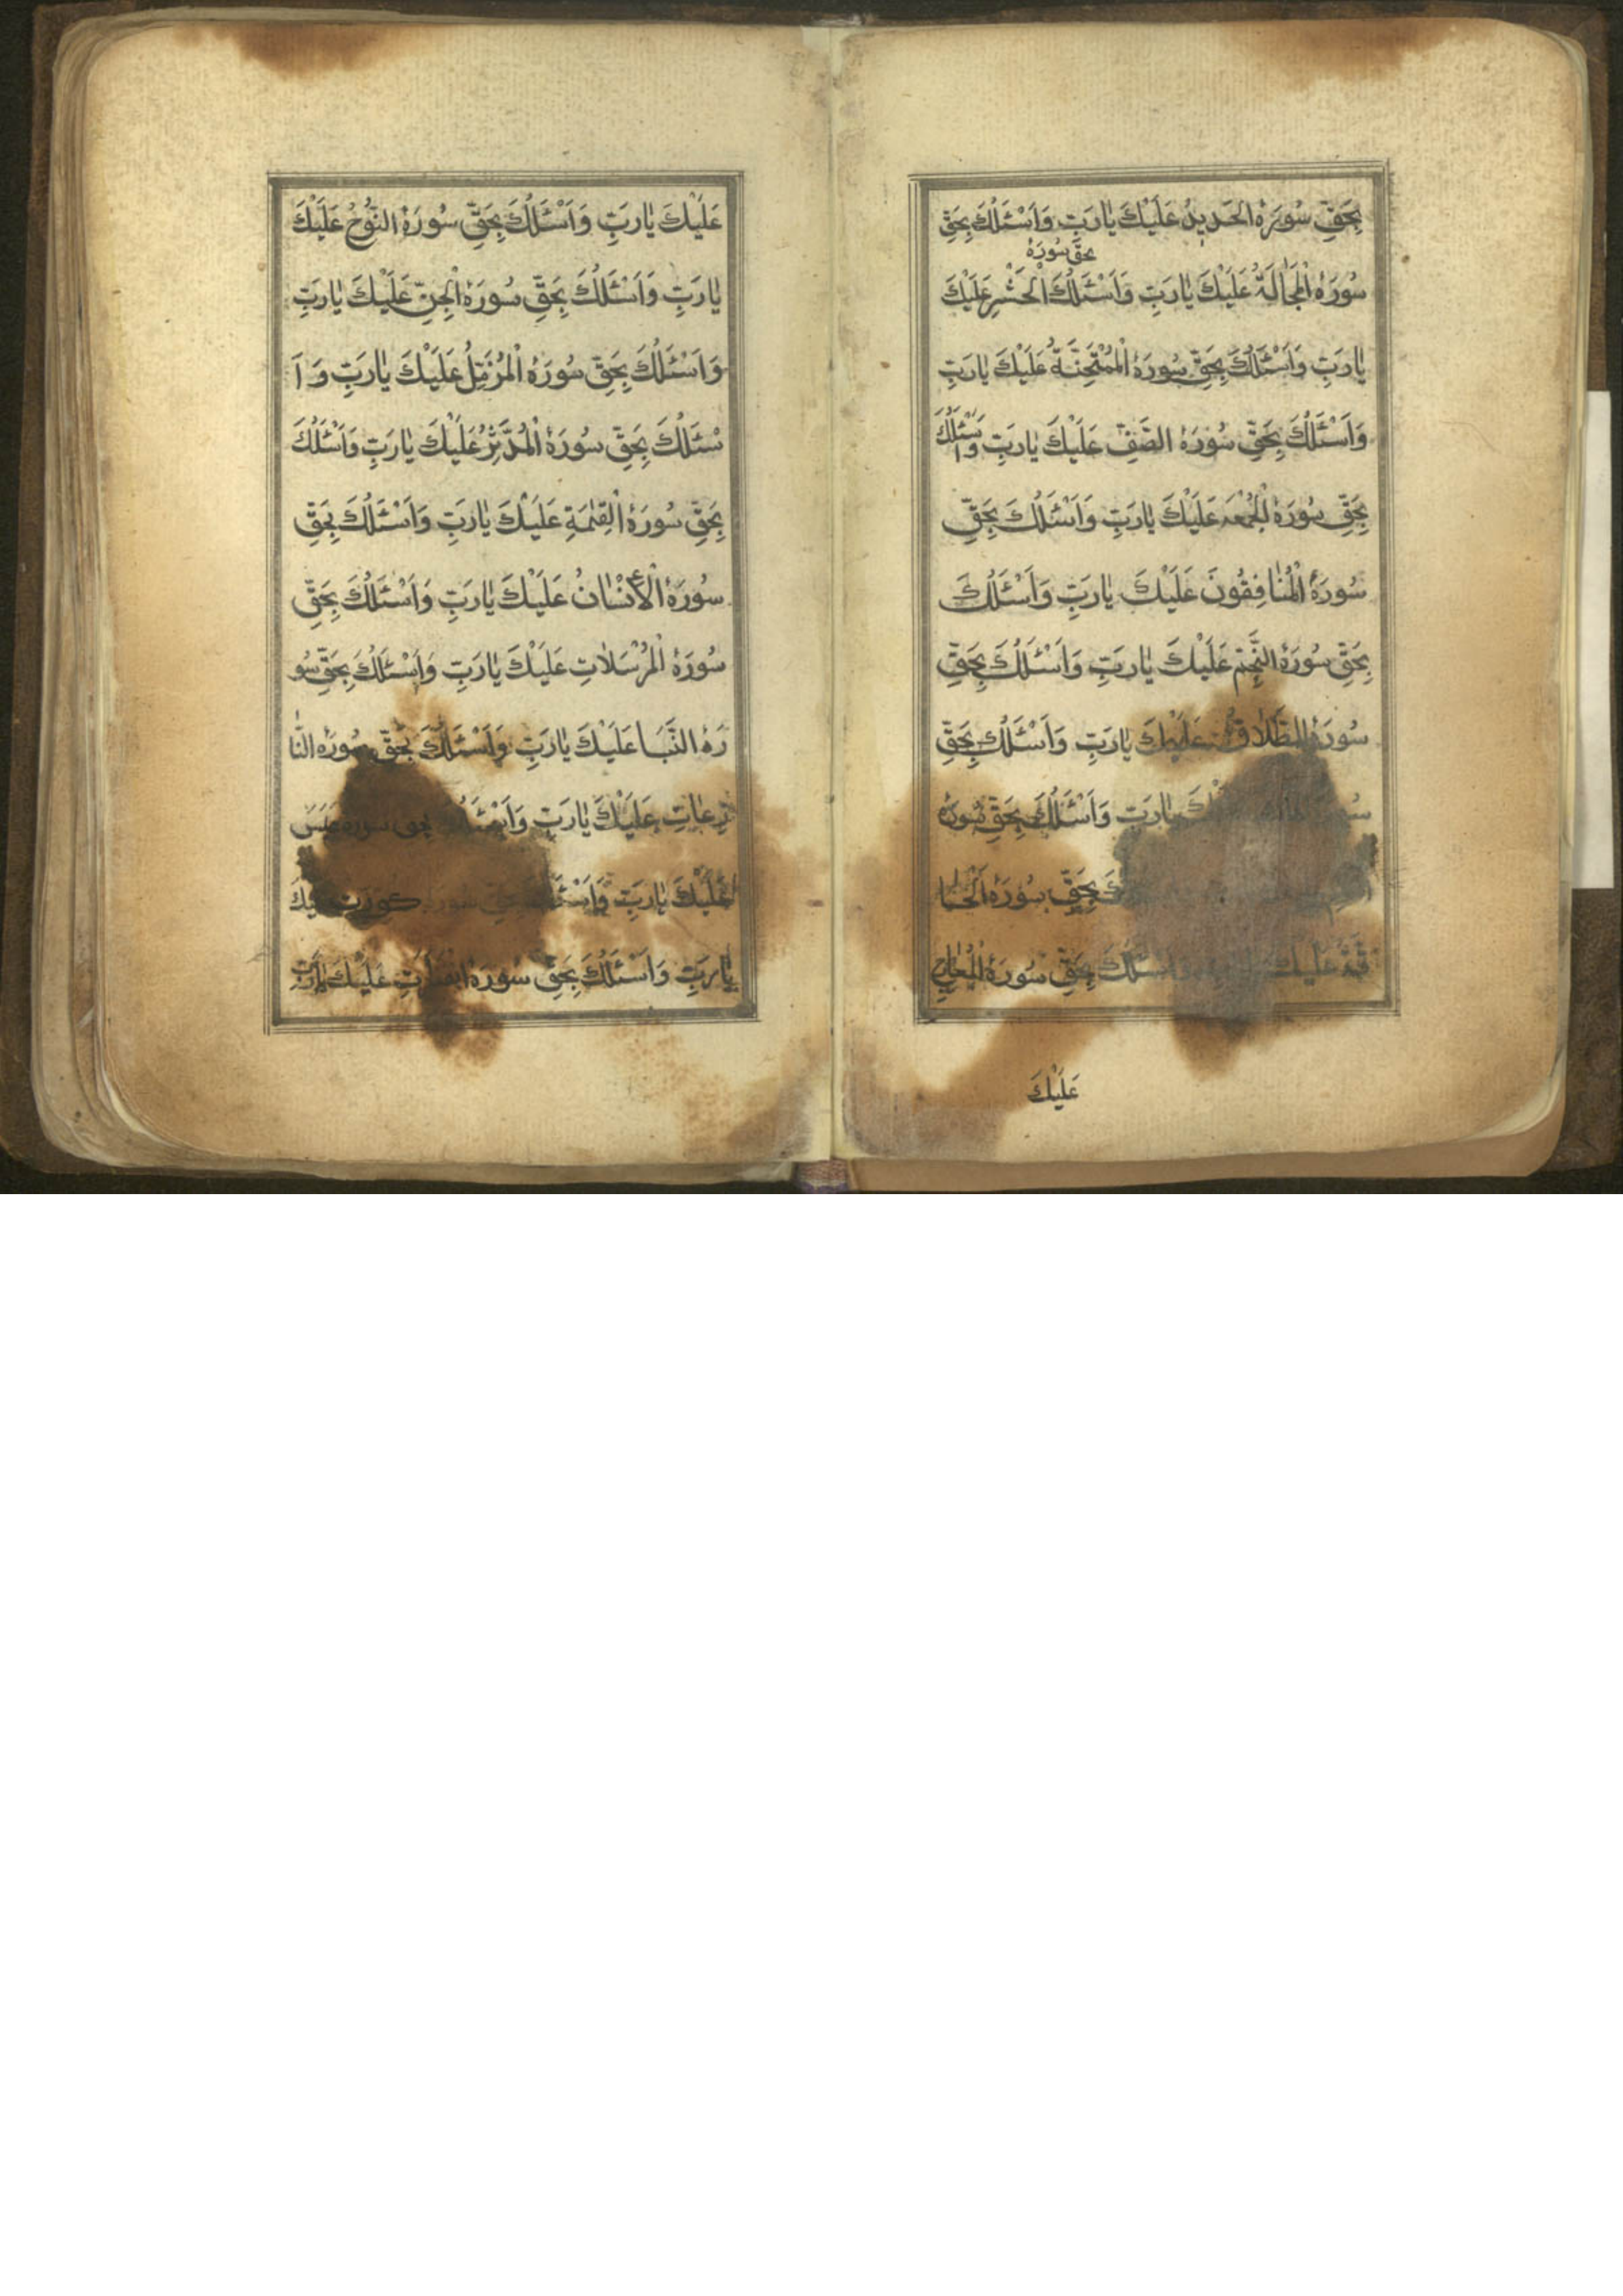 بِحَقِّ سُورَةُ الحَدِيدُ عَلَيْكَ يٰارَبِّ وَاَسْئَلُكَ بِحَقِّ
بحق سُورَةُ
سُورَةُ الْمُجَالَةُ عَلَيْكَ يٰارَبِّ وَاَسْئَلُكَ الْحَشْرِ عَلَيْكَ
يٰارَبِّ وَاَسْئَلُكَ بِحَقِّ سُورَةُ الْمُمْتَحِنَةُ عَلَيْكَ يٰارَبِّ
وَاَسْئَلُكَ بِحَقِّ سُورَةُ الصَّفِّ عَلَيْكَ يٰارَبِّ وَاَسْئَلُكَ
بِحَقِّ سُورَةُ الْجُمْعَه عَلَيْكَ يٰارَبِّ وَاَسْئَلُكَ بِحَقِّ
سُورَةُ الْمُنٰافِقُونَ عَلَيْكَ يٰارَبِّ وَاَسْئَلُكَ
بِحَقِّ سُورَةُ النَّجْم عَلَيْكَ يٰارَبِّ وَاَسْئَلُكَ بِحَقِّ
سُورَةُ الطَّلٰاق عَلَيْكَ يٰارَبِّ وَاَسْئَلُكَ بِحَقِّ
يٰارَبِّ وَاَسْئَلُكَ بِحَقِّ سُورَةُ
بِحَقِّ سُورَةُ اَلْحٰا
قَّةُ عَلَيْكَ وَاَسْئَلُكَ بِحَقِّ سُورَةُ الْمَعٰارِجِ
عَلَيْكَ
عَلَيْكَ يٰارَبِّ وَاَسْئَلُكَ بِحَقِّ سُورَةُ النُّوْحُ عَلَيْكَ
يٰارَبِّ وَاَسْئَلُكَ بِحَقِّ سُورَةُ الْجِنِّ عَلَيْكَ يٰارَبِّ
وَاَسْئَلُكَ بِحَقِّ سُورَةُ الْمُزَمِّلُ عَلَيْكَ يٰارَبِّ وَ اَ
سْئَلُكَ بِحَقِّ سُورَةُ الْمُدَّثِّرُ عَلَيْكَ يٰارَبِّ وَاَسْئَلُكَ
بِحَقِّ سُورَةُ الْقِيٰمَةِ عَلَيْكَ يٰارَبِّ وَاَسْئَلُكَ بِحَقِّ
سُورَةُ الْأِنْسٰانُ عَلَيْكَ يٰارَبِّ وَاَسْئَلُكَ بِحَقِّ
سُورَةُ الْمُرْسَلٰاتِ عَلَيْكَ يٰارَبِّ وَاَسْئَلُكَ بِحَقِّ سُو
رَةُ النَّبَا عَلَيْكَ يٰارَبِّ وَاَسْئَلُكَ بِحَقِّ سُورَةُ النّٰا
زِعٰاتِ عَلَيْكَ يٰارَبِّ وَاَسْئَلُكَ بحق سوره عَبَسَ
عَلَيْكَ يٰارَبِّ وَاَسْئَلُكَ بحَقِّ سُورَة كُوِّرَت عَلَيْكَ
يٰارَبِّ وَاَسْئَلُكَ بِحَقِّ سُورَةُ انْفَطَرَتْ عَلَيْكَ يٰارَبِّ